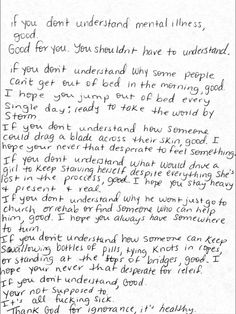 if you dont understand mental illness,
good.
Good for you. You shouldnt have to understand.
if you don't understand why some people
Can't get out of bed in the morning, good.
I hope you jump out of bed every
Single day; ready to take the world by
Storm
If you don't understand how someone
could drag a blade across their skin, good. I
hope your never that desprate to feel something.
If you dont understand, what would drive a
girl to keep Starving herself despite everything She's
lost in the process, good. I hope you stay heavy
& present & real.
If you don't understand why he wont just go to
church or rehab or find someone who can help
him, good. I hope you always have somewhere
to turn.
If you don't understand how someone can keep
Swallowing bottles of pills, tying knots in ropes,
or standing at the tops of bridges, good. I
hope your never that desperate for releif.
If you dont understand, Good.
Your not supposed to.
It's all fucking sick.
Thank God for ignorance, it's healthy.